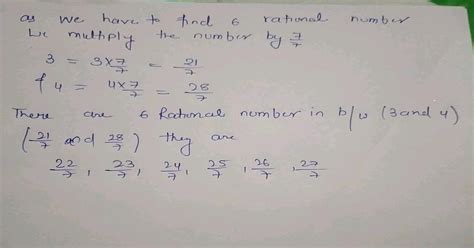 as we have to find 6 rational number
We multiply the number by 7/7
3 = 3×7/7 = 21/7
& 4 = 4×7/7 = 28/7
There are 6 Rational number in b/w (3 and 4)
(21/7 and 28/7) they are
22/7, 23/7, 24/7, 25/7, 26/7, 27/7